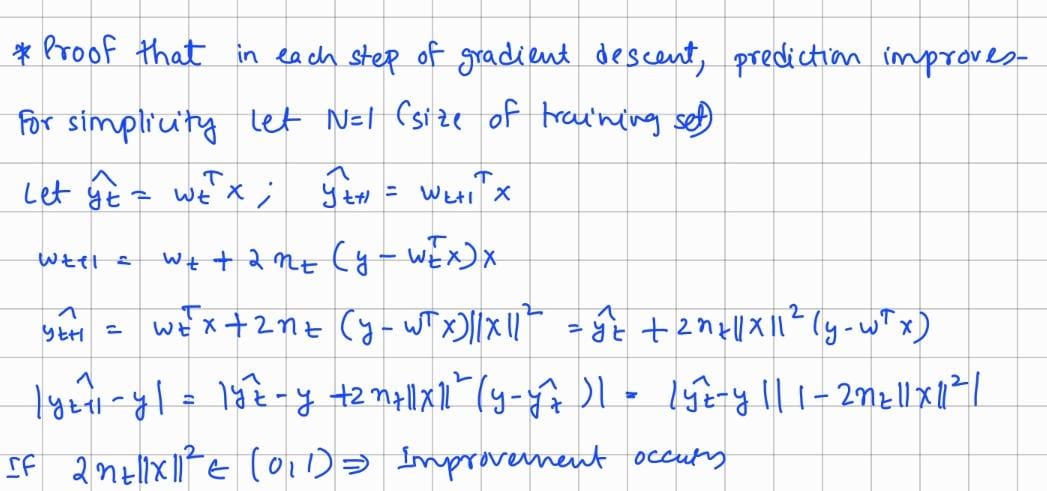 * Proof that in each step of gradient descent, prediction improves-
For simplicity let N=1 (size of training set)
Let ŷ_t = w_t^T x ; ŷ_{t+1} = w_{t+1}^T x
w_{t+1} = w_t + 2 n_t (y - w_t^T x) x
ŷ_{t+1} = w_t^T x + 2 n_t (y - w^T x) ||x||^2 = ŷ_t + 2 n_t ||x||^2 (y - w^T x)
|ŷ_{t+1} - y| = |ŷ_t - y + 2 n_t ||x||^2 (y - ŷ_t)| = |ŷ_t - y| |1 - 2 n_t ||x||^2|
If 2 n_t ||x||^2 ∈ (0,1) ⇒ Improvement occurs